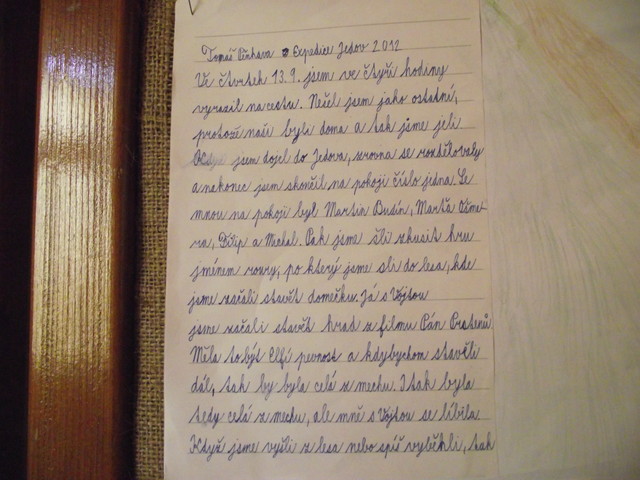 Tomáš Pěnkava Expedice Jedov 2012
Ve čtvrtek 13.9. jsem ve čtyři hodiny
vyrazil na cestu. Nešel jsem jako ostatní,
protože naši byli doma a tak jsme jeli
Když jsem dojel do Jedova, zrovna se rozdělovaly
a nakonec jsem skončil na pokoji číslo jedna. Se
mnou na pokoji byl Martin Budín, Marťa
ra, Filip a Michal. Pak jsme šli zkusit hru
jménem roury, po který jsme sli do lesa, kde
jsme začali stavět domečku. Já s Vojtou
jsme začali stavět hrad z filmu Pán Prstenů
Měla to být Elfí pevnost a kdybychom stavěli
dál, tak by byla celá z mechu. I tak byla
tedy celá z mechu, ale mně s Vojtou se líbila
Když jsme vyšli z lesa nebo spíš vyběhli, tak